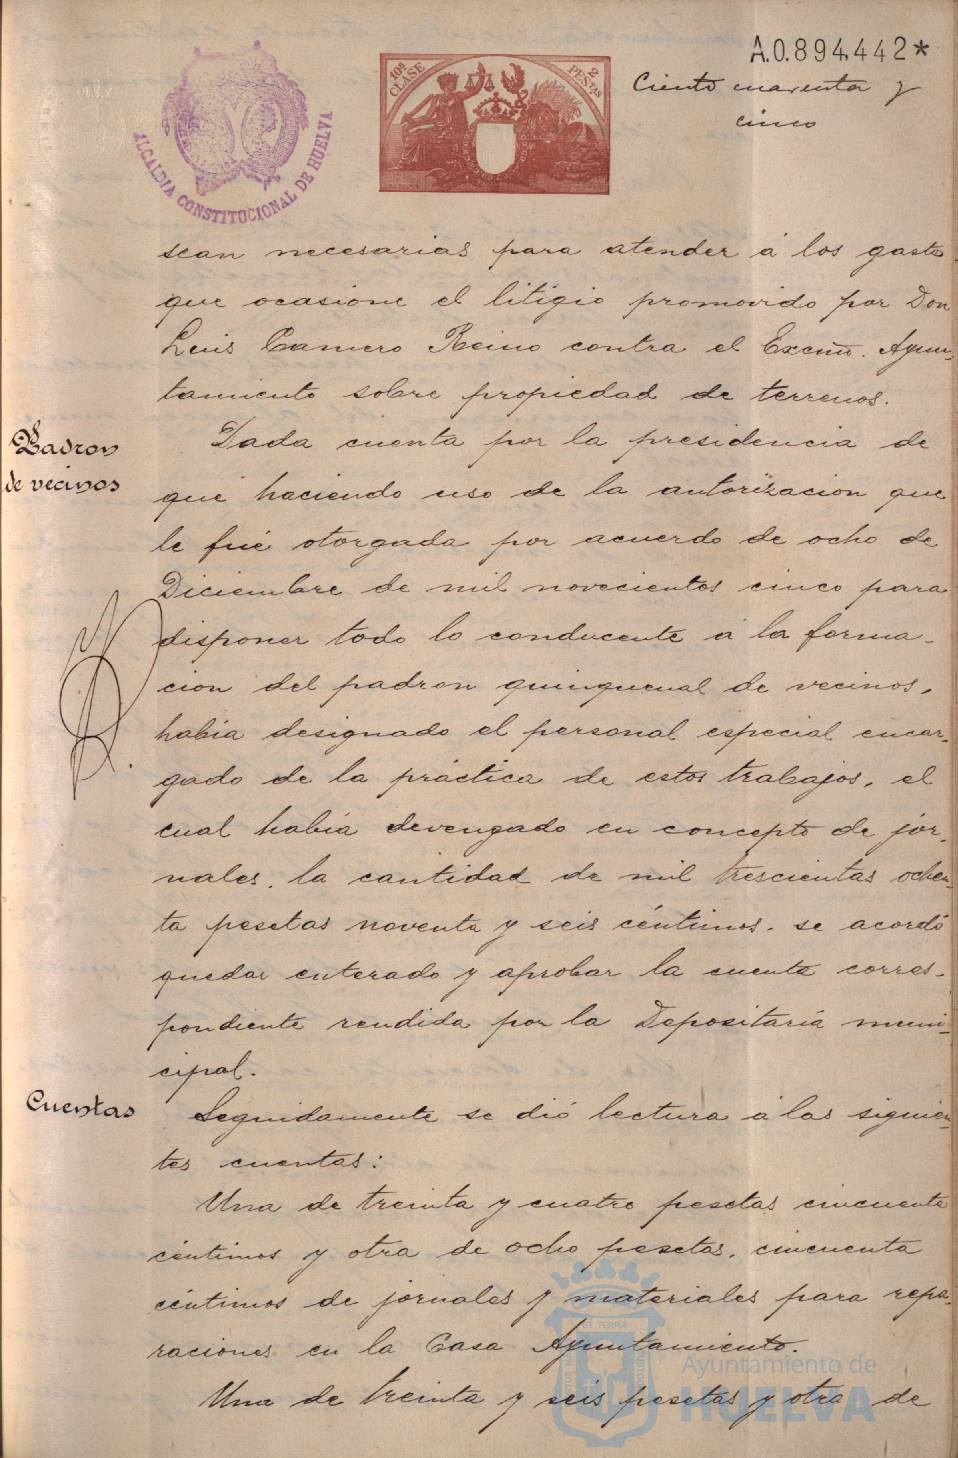 A.0.894.442*
Ciento cuarenta y
cinco
10ª CLASE
2 PESTAS
ALCALDIA CONSTITUCIONAL DE HUELVA
sean necesarias para atender á los gastos
que ocasione el litigio promovido por Don
Luis Camero Reino contra el Excmo. Ayun-
tamiento sobre propiedad de terrenos.
Padron
de vecinos
Dada cuenta por la presidencia de
que haciendo uso de la autorizacion que
le fué otorgada por acuerdo de ocho de
Diciembre de mil novecientos cinco para
disponer todo lo conducente á la forma-
cion del padron quinquenal de vecinos,
habia designado el personal especial encar-
gado de la práctica de estos trabajos, el
cual habia devengado en concepto de jor-
nales, la cantidad de mil trescientas ochen-
ta pesetas noventa y seis céntimos, se acordó
quedar enterado y aprobar la cuenta corres-
pondiente rendida por la Depositaría muni-
cipal.
Cuentas
Seguidamente se dió lectura á las siguien-
tes cuentas:
Una de treinta y cuatro pesetas cincuenta
céntimos y otra de ocho pesetas, cincuenta
céntimos de jornales y materiales para repa-
raciones en la Casa Ayuntamiento.
Una de treinta y seis pesetas y otra de
Ayuntamiento de
HUELVA